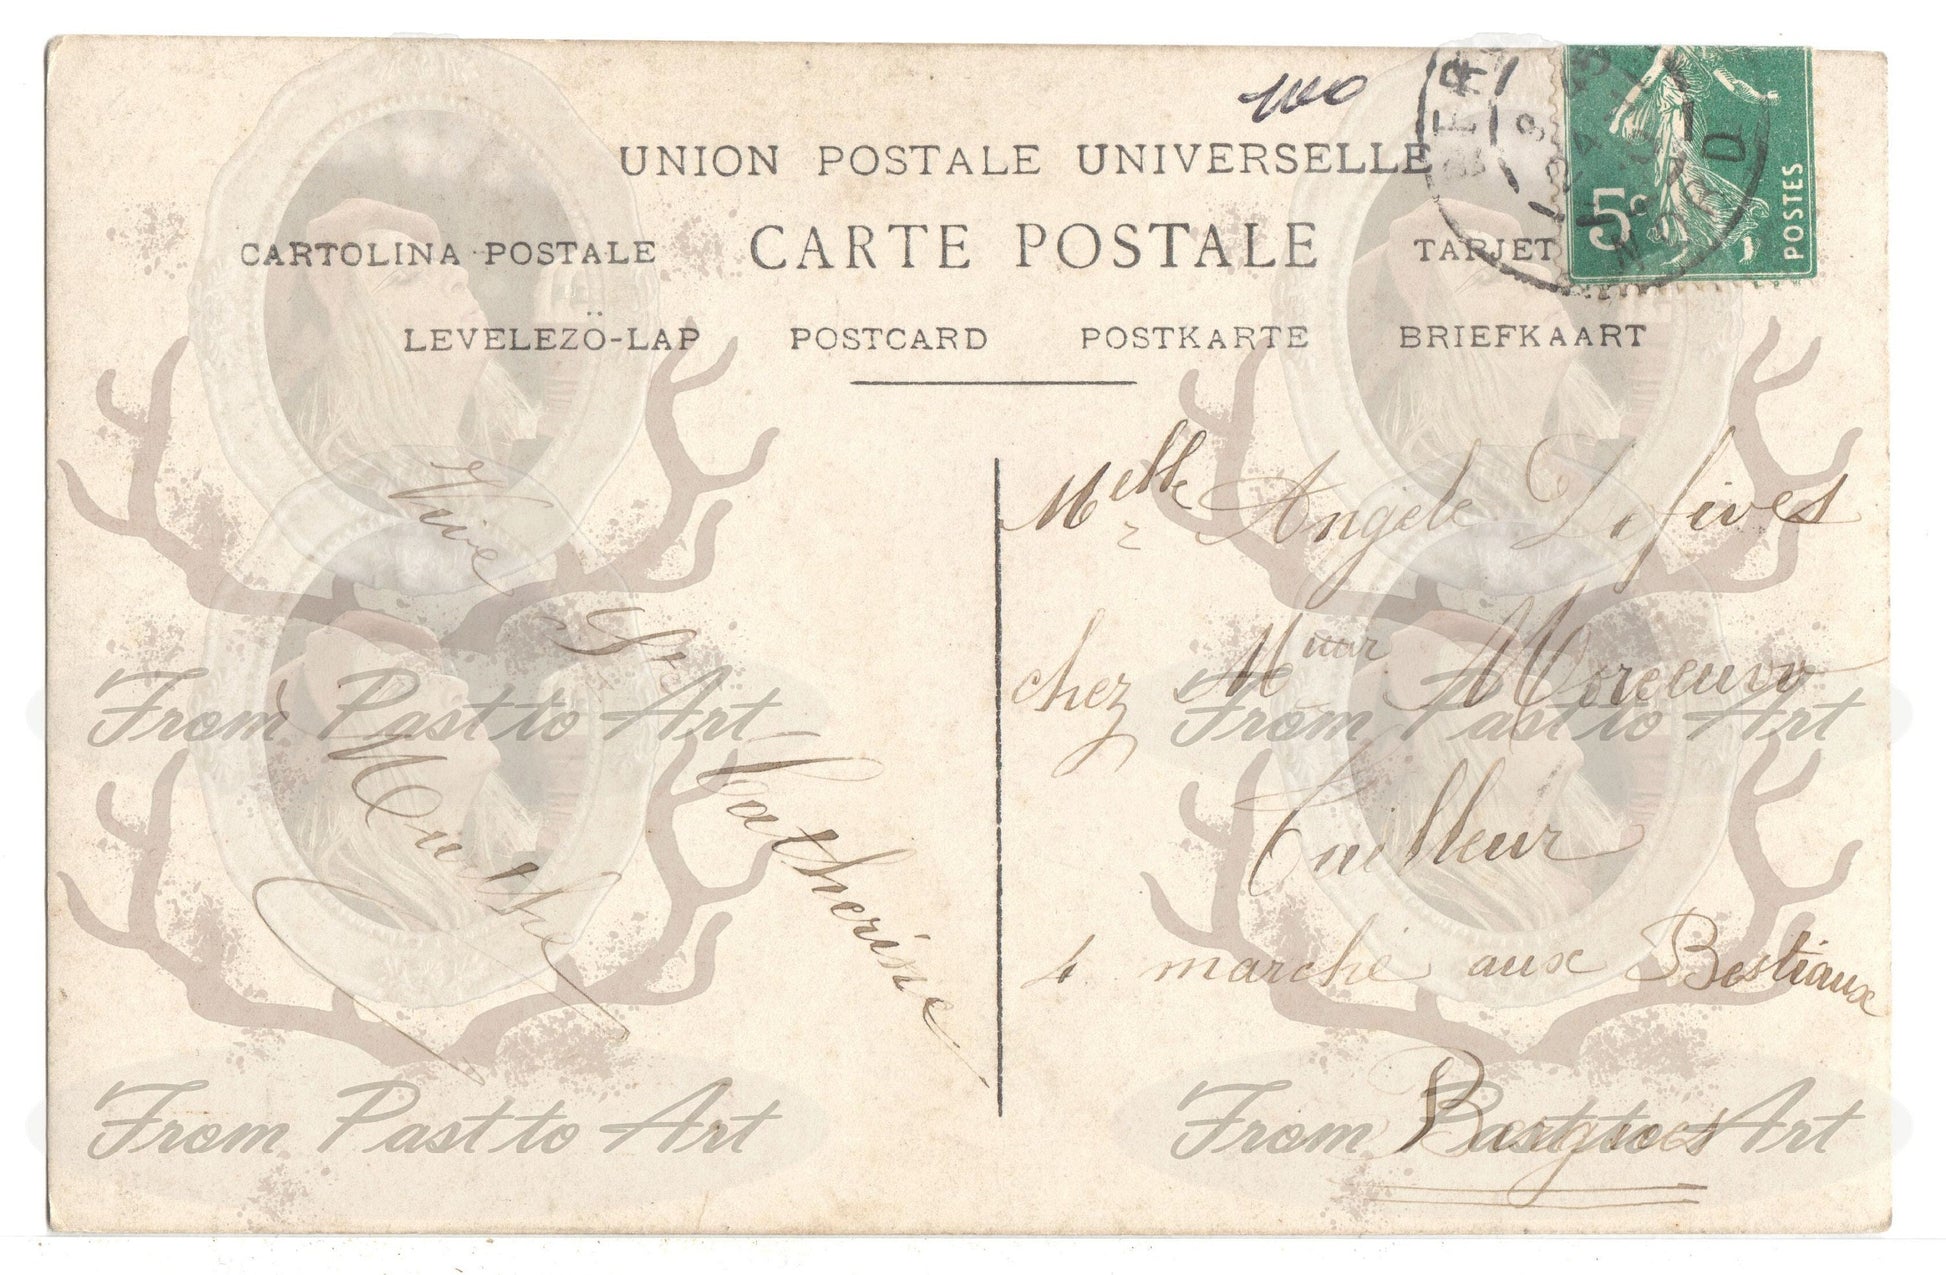 UNION POSTALE UNIVERSELLE
CARTOLINA POSTALE CARTE POSTALE TARJET
LEVELEZÖ-LAP POSTCARD POSTKARTE BRIEFKAART
5c POSTES
NORD
Vive
Ste
Catherine
Melle Angele Defives
chez
Tailleur
4 marché aux Bestiaux
Bergues
From Past to Art
From Past to Art
From Past to Art
From Past to Art